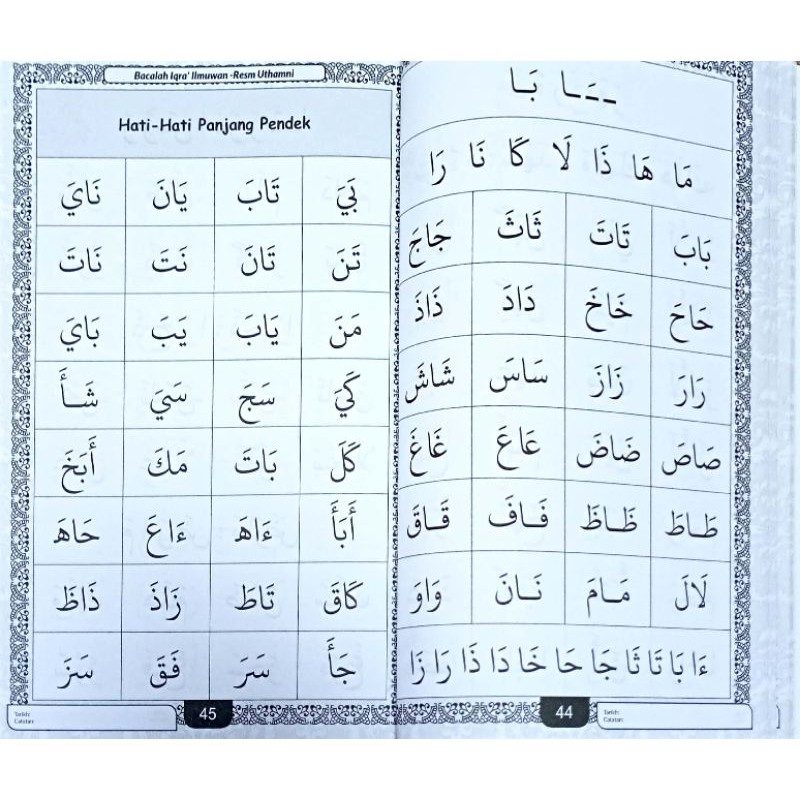 ـ ـَـا بَـا
مَا هَا ذَا لَا كَا نَا رَا
بَابَ تَاتَ ثَاثَ جَاجَ
حَاحَ خَاخَ دَادَ ذَاذَ
رَارَ زَازَ سَاسَ شَاشَ
صَاصَ ضَاضَ عَاعَ غَاغَ
طَـاطَ ظَـاظَ فَـافَ قَـاقَ
لَالَ مَـامَ نَـانَ وَاوَ
ءَا بَا تَا ثَا جَا حَا خَا دَا ذَا رَا زَا
44
Tarikh:
Catatan:
Bacalah Iqra' Ilmuwan -Resm Uthamni
Hati-Hati Panjang Pendek
بَيَ تَابَ يَانَ نَايَ
تَنَ تَانَ نَتَ نَاتَ
مَنَ يَابَ يَبَ بَايَ
كَيَ سَجَ سَيَ شَـأَ
كَلَ بَاتَ مَكَ أَبَخَ
أَبَأَ ءَاهَ ءَاعَ حَاهَ
كَاقَ تَاطَ زَاذَ ذَاظَ
جَأَ سَرَ فَقَ سَزَ
Tarikh:
Catatan:
45